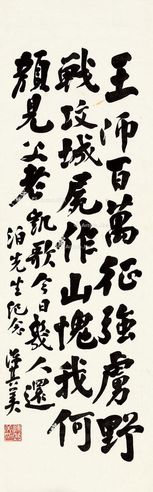 王師百萬征強虜野
戰攻城屍作山愧我何
顏見父老凱歌今日幾人還
泊先生紀念 陳其美